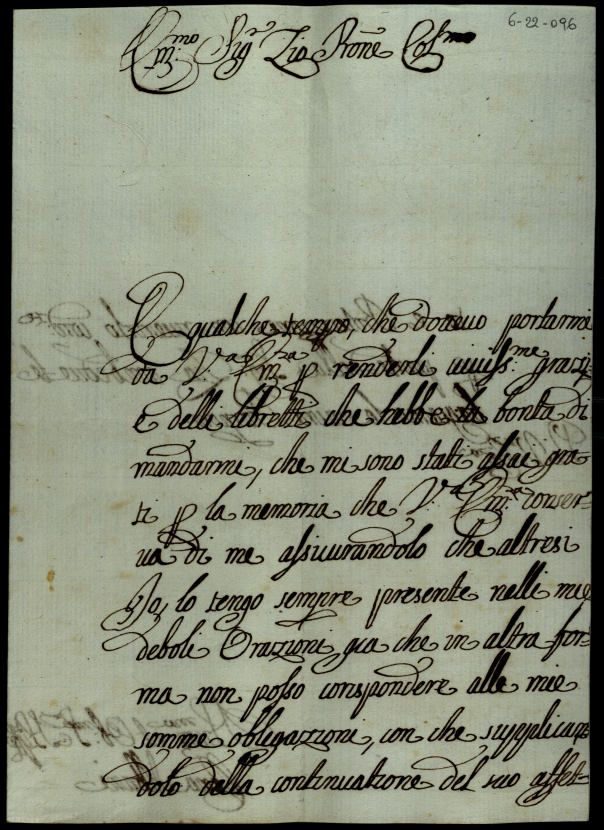 6-22-096
Em.mo Sig.r Zio Rone Col.mo
È qualche tempo, che doveuo portarmi
da V.a Em.za p renderli uiuiss.me grazi
e delli libretti che hebbe bontà di
mandarmi, che mi sono stati assai gra-
ti p la memoria che V.a Em.za conser-
ua di me assicurandolo che altresi
Io, lo tengo sempre presente nelli mie
deboli Orazzioni, gia che in altra for-
ma non posso corispondere alle mie
somme obligazzioni, con che supplican-
dolo della continuatione del suo affet-